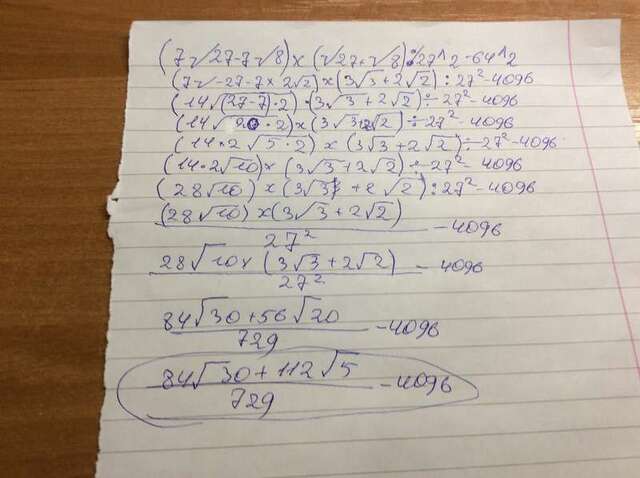 (7√27-7√8)×(√27+√8):27^2-64^2
(7√-27-7×2√2)×(3√3+2√2):27²-4096
(14√(27-7)·2)·(3√3+2√2)÷27²-4096
(14√20·2)×(3√3+2√2)÷27²-4096
(14·2√5·2)×(3√3+2√2)÷27²-4096
(14·2√10)×(3√3+2√2)÷27²-4096
(28√10)×(3√3+2√2):27²-4096
(28√10)×(3√3+2√2)
27² -4096
28√10×(3√3+2√2)
27² -4096
84√30+56√20
729 -4096
84√30+112√5
729 -4096